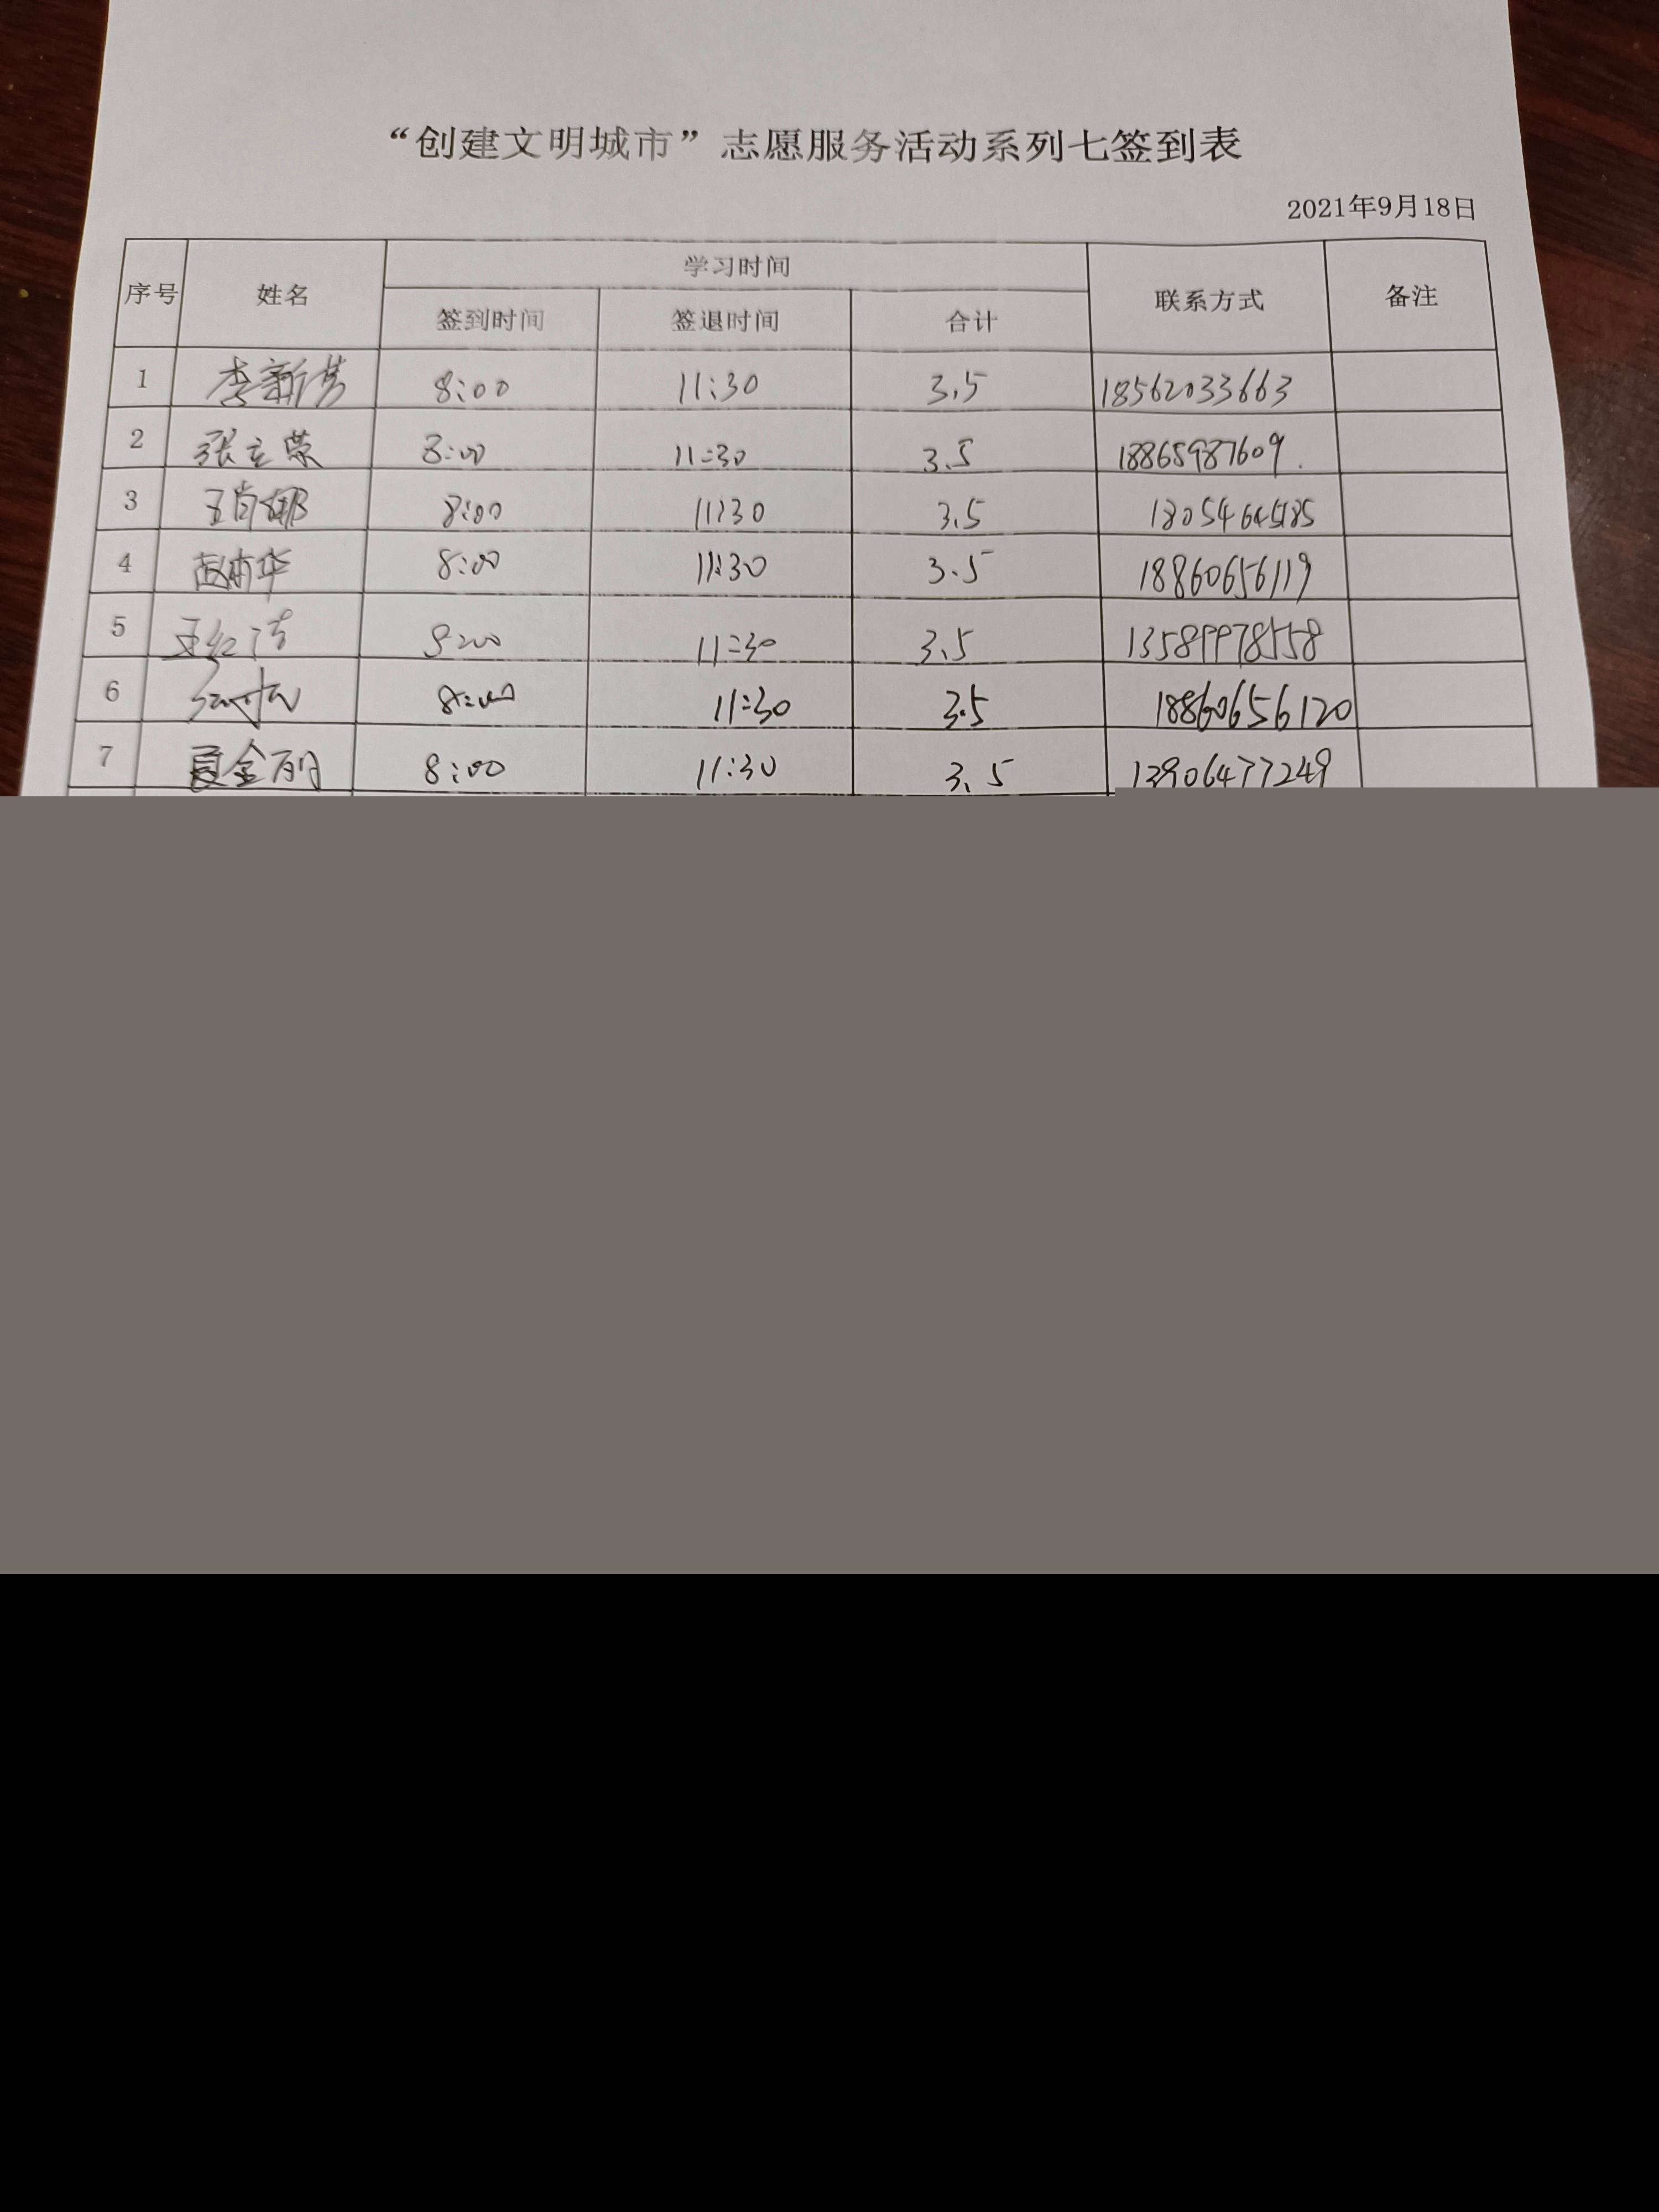 “创建文明城市”志愿服务活动系列七签到表
2021年9月18日
序号 姓名 学习时间 联系方式 备注
签到时间 签退时间 合计
1 李新芳 8:00 11:30 3.5 18562033663
2 张立荣 8:00 11:30 3.5 18865987609
3 王肖娜 8:00 11:30 3.5 18054645185
4 华 8:00 11:30 3.5 18860656119
5 王红洁 8:00 11:30 3.5 13589978558
6 8:00 11:30 3.5 18860656120
7 夏金丽 8:00 11:30 3.5 13906477249